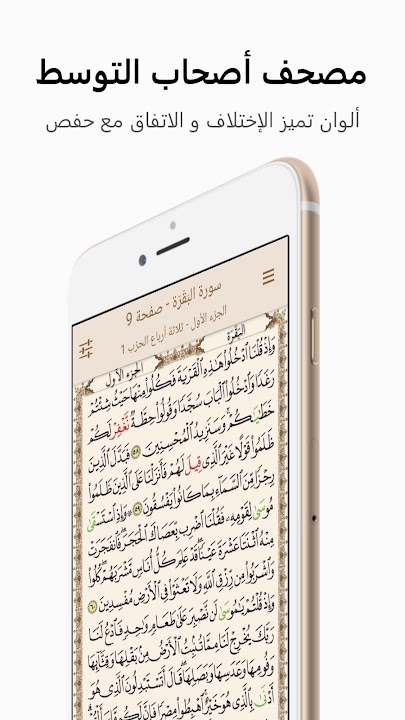 مصحف أصحاب التوسط
ألوان تميز الإختلاف و الاتفاق مع حفص
سورة البَقَرَة - صفحة 9
الجزء الأول - ثلاثة أرباع الحزب 1
البَقَرَة
الجزء الأول
وَإِذْ قُلْنَا ٱدْخُلُوا۟ هَٰذِهِ ٱلْقَرْيَةَ فَكُلُوا۟ مِنْهَا حَيْثُ شِئْتُمْ
رَغَدًا وَٱدْخُلُوا۟ ٱلْبَابَ سُجَّدًا وَقُولُوا۟ حِطَّةٌ تُغْفَرْ لَكُمْ
خَطَٰيَٰكُمْ وَسَنَزِيدُ ٱلْمُحْسِنِينَ ٥٨ فَبَدَّلَ ٱلَّذِينَ
ظَلَمُوا۟ قَوْلًا غَيْرَ ٱلَّذِى قِيلَ لَهُمْ فَأَنزَلْنَا عَلَى ٱلَّذِينَ ظَلَمُوا۟
رِجْزًا مِّنَ ٱلسَّمَآءِ بِمَا كَانُوا۟ يَفْسُقُونَ ٥٩ ۞ وَإِذِ ٱسْتَسْقَىٰ
مُوسَىٰ لِقَوْمِهِۦ فَقُلْنَا ٱضْرِب بِّعَصَاكَ ٱلْحَجَرَ ۖ فَٱنفَجَرَتْ
مِنْهُ ٱثْنَتَا عَشْرَةَ عَيْنًا ۖ قَدْ عَلِمَ كُلُّ أُنَاسٍ مَّشْرَبَهُمْ ۖ كُلُوا۟
وَٱشْرَبُوا۟ مِن رِّزْقِ ٱللَّهِ وَلَا تَعْثَوْا۟ فِى ٱلْأَرْضِ مُفْسِدِينَ ٦٠
وَإِذْ قُلْتُمْ يَٰمُوسَىٰ لَن نَّصْبِرَ عَلَىٰ طَعَامٍ وَٰحِدٍ فَٱدْعُ لَنَا
رَبَّكَ يُخْرِجْ لَنَا مِمَّا تُنۢبِتُ ٱلْأَرْضُ مِنۢ بَقْلِهَا وَقِثَّآئِهَا
وَفُومِهَا وَعَدَسِهَا وَبَصَلِهَا ۖ قَالَ أَتَسْتَبْدِلُونَ ٱلَّذِى هُوَ
أَدْنَىٰ بِٱلَّذِى هُوَ خَيْرٌ ۚ ٱهْبِطُوا۟ مِصْرًا فَإِنَّ لَكُم مَّا سَأَلْتُمْ